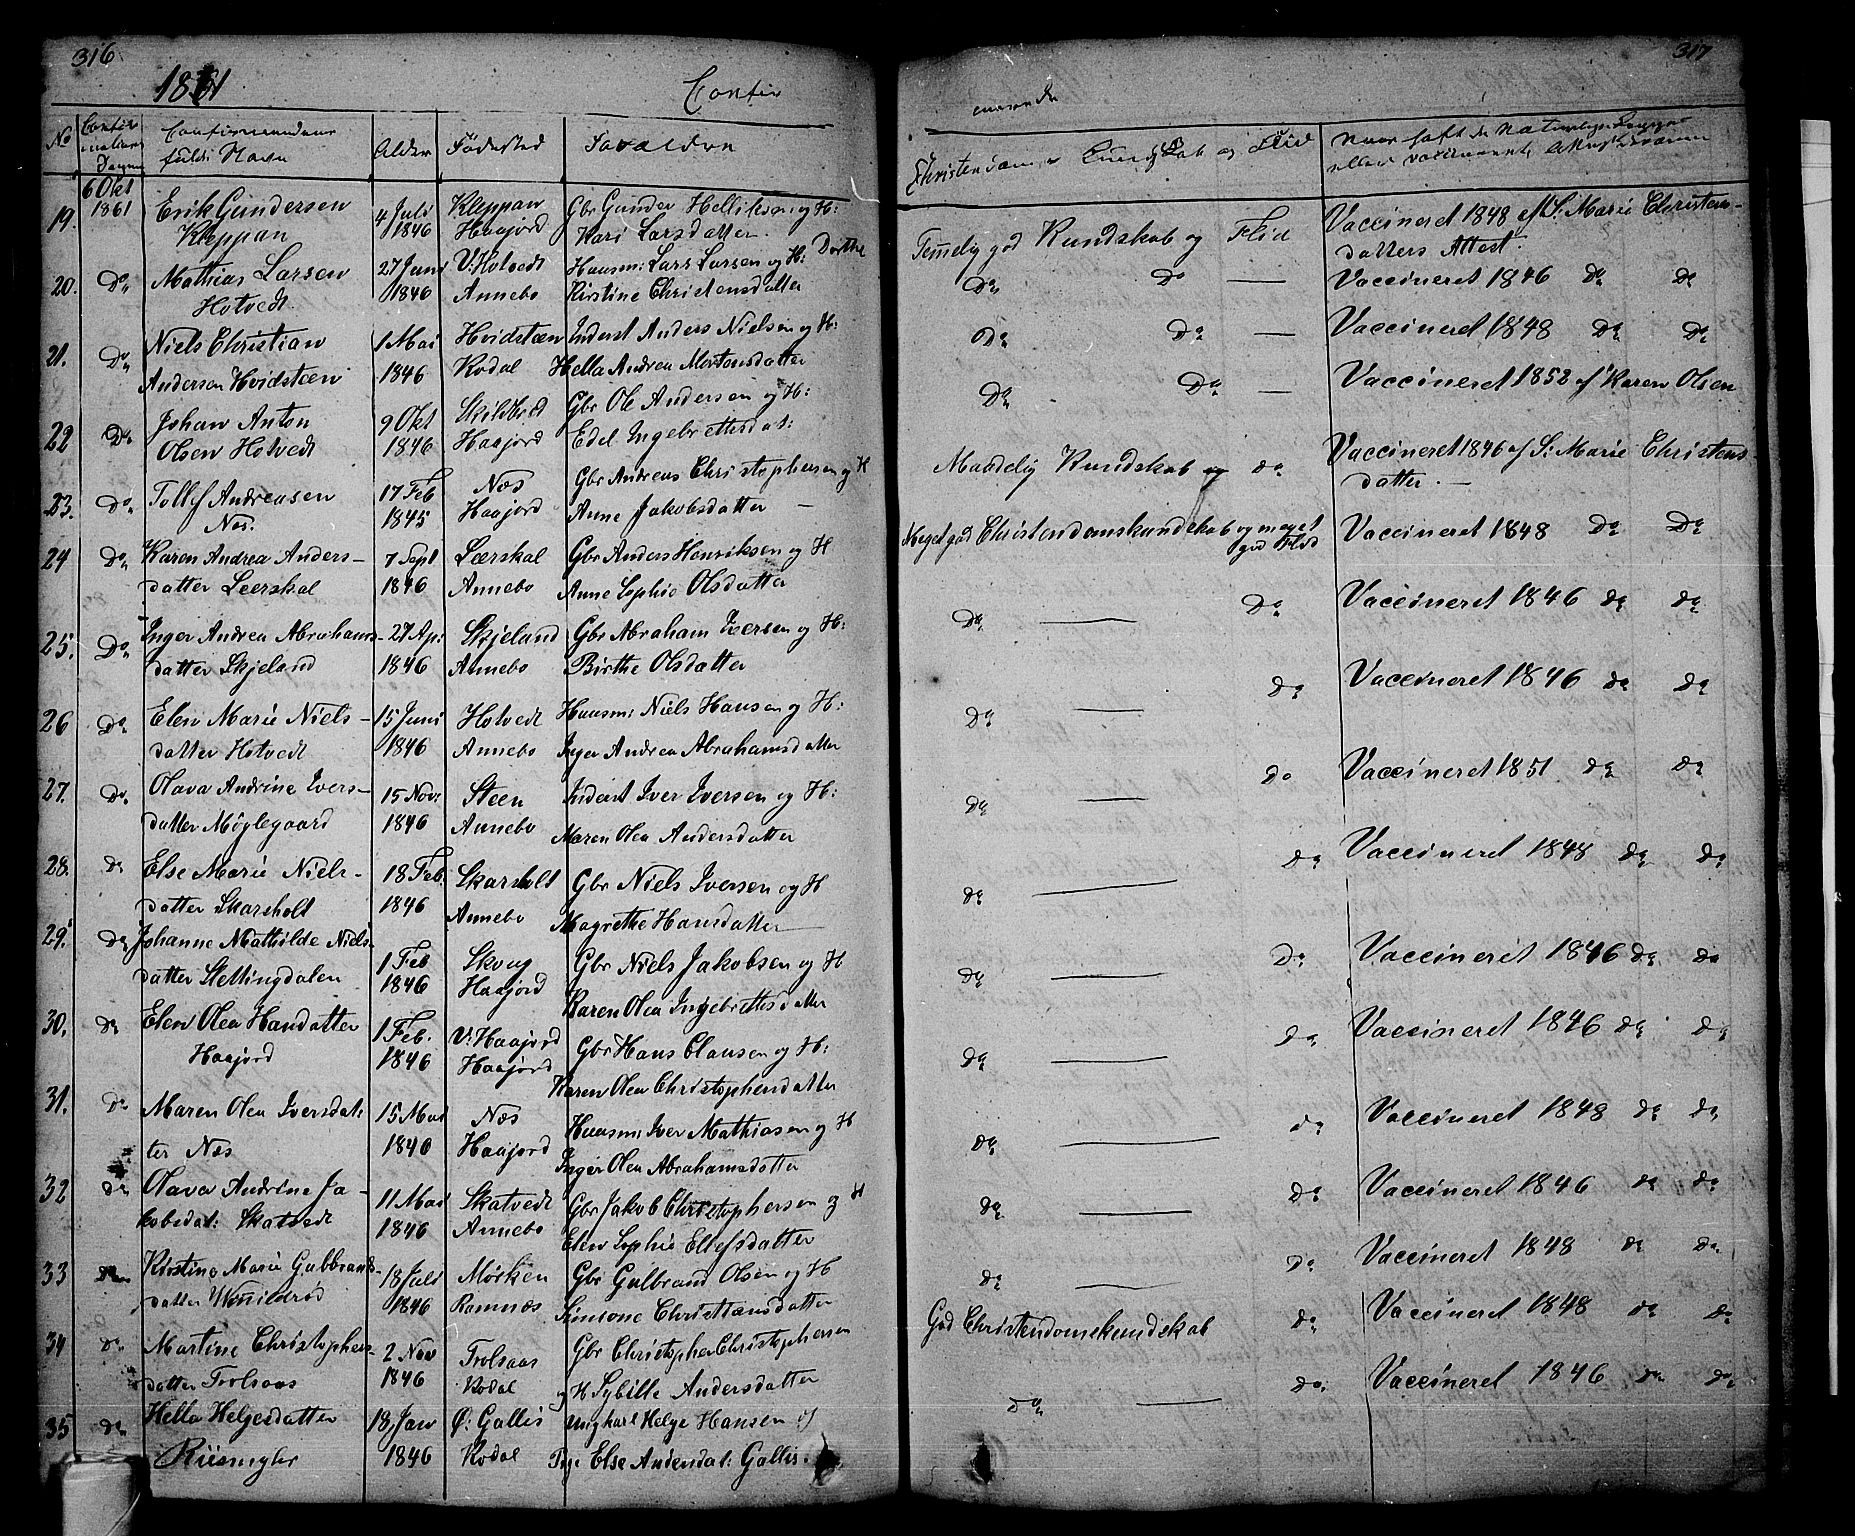 316
1861
Confir
No
Confir
mations
Dagen
Confirmandens
fulde Navn
Alder
Fødested
Forældre
6 Okt
1861
19.
Erik Gundersen
Kleppan
4 Juli
1846
Kleppan
Haajord
Gbr Gunder Helliksen og H:
Kari Larsdatter.
20.
Do
Mathias Larsen
Hotvedt
27 Juni
1846
V: Hotvedt
Annebo
Huusm: Lars Larsen og H: Dorthe
Kirstine Christensdatter
21.
Do
Niels Christian
Andersen Hvidsteen
1 Mai
1846
Hvidsteen
Kodal
Inderst Anders Nielsen og H:
Hella Andrea Mortensdatter
22
Do
Johan Anton
Olsen Hotvedt
9 Okt
1846
Skildbred
Haajord
Gbr Ole Andersen og H:
Edel Ingebrettsdat:
23.
Do
Tollef Andreasen
Nes.
17 Feb
1845
Næs
Haajord
Gbr Andreas Christophersen og H
Anne Jakobsdatter —
24
Do
Karen Andrea Anders-
datter Leerskal
7 Sept
1846
Leerskal
Annebo
Gbr Anders Henriksen og H
Anne Sophie Olsdatter
25.
Do
Inger Andrea Abrahams-
datter Skjeland
27 Ap:
1846
Skjeland
Annebo
Gbr Abraham Iversen og H:
Birthe Olsdatter
26
Do
Elen Marie Niels-
datter Hotvedt
15 Juni
1846
Hotvedt
Annebo
Huusm: Niels Hansen og H:
Inger Andrea Abrahamsdatter
27.
Do
Olava Andrine Ivers-
datter Møglegaard
15 Nov:
1846
Steen
Annebo
Inderst Iver Iversen og H:
Maren Olea Andersdatter
28.
do
Else Marie Niels-
datter Skarsholt
18 Feb.
1846
Skarsholt
Annebo
Gbr Niels Iversen og H
Magrethe Hansdatter
29.
do
Johanne Mathilde Niels-
datter Slettingdalen
1 Feb
1846
Skoug
Haajord
Gbr Niels Jakobsen og H
Karen Olea Ingebrettsdatter
30.
do
Elen Olea Handatter
Haajord
1 Feb.
1846
V: Haajord
Haajord
Gbr Hans Clausen og H:
Karen Olea Christophersdatter
31.
Do
Maren Olea Iversdat:
ter Næs
15 Mai
1840
Næs
Haajord
Huusm: Iver Mathiasen og H
Inger Olea Abrahamsdatter
32
do
Olava Andrine Ja-
kobsdat: Skatvedt
11 Mai
1846
Skatvedt
Annebo
Gbr Jakob Christophersen og H
Elen Sophie Ellefsdatter
33
do
Kirstine Marie Gulbrands-
datter Wenildrød
18 Juli
1846
Mørken
Ramnæs
Gbr Gulbrand Olsen og H
Simone Christiansdatter
34
do
Martine Christophers-
datter Trolsaas
2 Nov
1846
Trolsaas
Kodal
Gbr Christopher Christophersen
og H Sybille Andersdatter
35
do
Hella Helgesdatter
Riismyhr
18 Jan
1846
Ø: Gallis
Kodal
Ungkarl Helge Hansen og
Pige Else Andersdat: Gallis.
317
merende
Christendoms Kundskab og Flid
Naar haft de Naturlige Kopper
eller vaccineret,
Temelig god Kundskab og Flid
Vaccineret 1848 af S: Marie Christens-
datters Attest.
Do Do —
Vaccineret 1846 do do
Do Do —
Vaccineret 1848 Do Do
Do Do —
Vaccineret 1852 af Karen Olsen
Maadelig Kundskab og do
Vaccineret 1846 af S: Marie Christens-
datter. —
Meget god Christendomskundskab og meget
god Flid
Vaccineret 1848 Do Do
Do — Do
Vaccineret 1846 do do
Do — do
Vaccineret 1846 do do
Do — do
Vaccineret 1851 do do
do — do
Vaccineret 1848 do do
do — Do
Vaccineret 1846 do do
do — do
Vaccineret 1846 do do
do — do
Vaccineret 1848 do do
do — do
Vaccineret 1846 do do
do — do
Vaccineret 1848 do do
God Christendomskundskab do
Vaccineret 1848 do do
do — do
Vaccineret 1846 do do